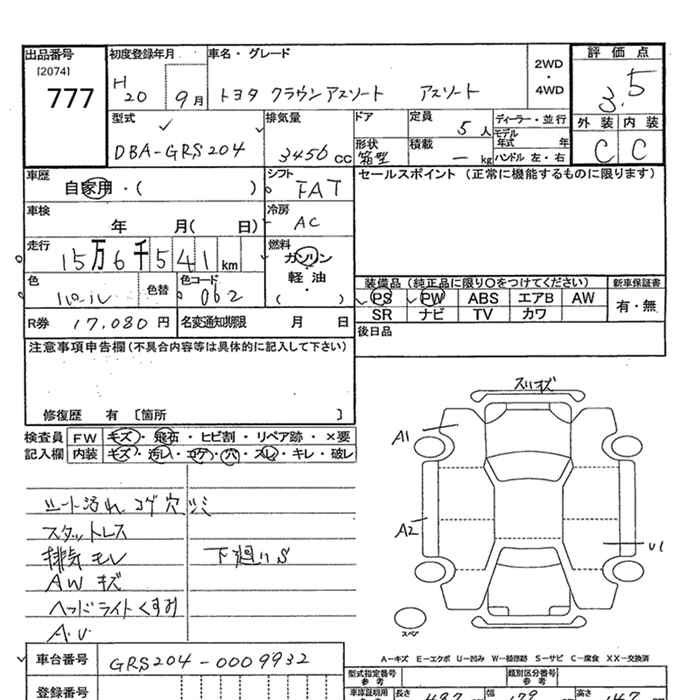 出品番号
[2074]
777
初度登録年月
H
20 9月
車名・グレード
トヨタ クラウンアスリート アスリート
2WD
・
4WD
評価点
3.5
外装 内装
C C
型式
DBA-GRS204
排気量
3456 CC
ドア
形状
箱型
定員
5人
積載
— kg
ディーラー・並行
モデル
年式 年
ハンドル 左・右
車歴
自家用・( )
シフト
FAT
セールスポイント (正常に機能するものに限ります)
車検
年 月( 日)
冷房
AC
走行
15万6千541km
燃料
ガソリン
軽油
( ・ )
色
パール
色替
色コード
062
装備品 (純正品に限り○をつけてください)
新車保証書
PS PW ABS エアB AW
有・無
SR ナビ TV カワ
R券 17,080円
名変通知期限 月 日
後日品
注意事項申告欄(不具合内容等は具体的に記入して下さい)
修復歴 有 [箇所 ]
検査員
記入欄
FW キズ・飛石・ヒビ割・リペア跡・×要
内装 キズ・汚レ・コゲ・穴・スレ・キレ・破レ
シート汚れ コゲ穴 シミ
スタットレス
排気モレ 下廻りS
AW キズ
ヘッドライトくすみ
A.U
スリキズ
A1
A2
U1
スペア
A—キズ E—エクボ U—凹み W—補修跡 S—サビ C—腐食 XX—交換済
車台番号 GRS204-0009932
登録番号
型式指定番号
参考
類別区分番号
参考
車庫証明用
長さ
幅
高さ